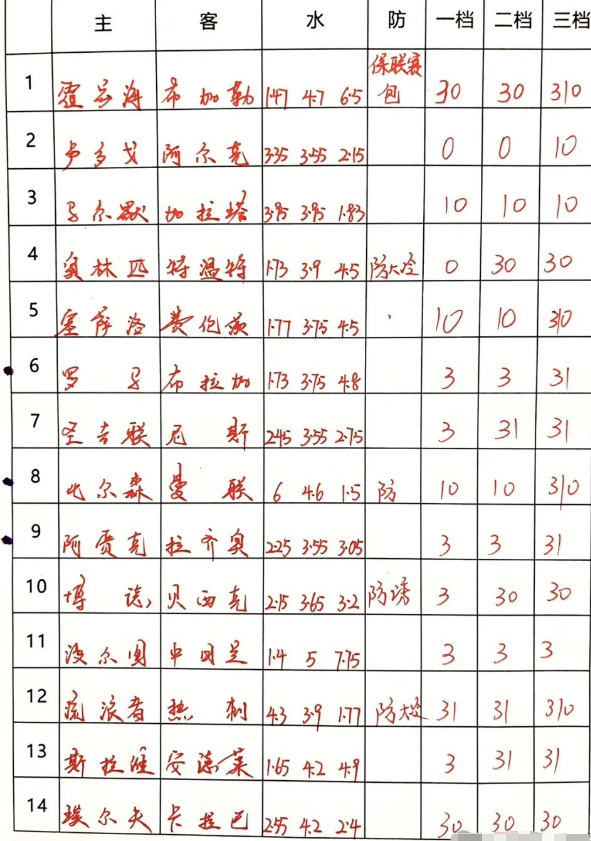 主 客 水 防 一档 二档 三档
1 霍芬海 布加勒 1.47 4.7 6.5 保联赛包 30 30 310
2 卢多戈 阿尔克 3.35 3.55 2.15 0 0 10
3 马尔默 加拉塔 3.95 3.95 1.83 10 10 10
4 奥林匹 特温特 1.73 3.9 4.5 防大冷 0 30 30
5 塞萨洛 费伦茨 1.77 3.75 4.5 10 10 310
6 罗马 布拉加 1.73 3.75 4.8 3 3 31
7 圣吉联 尼斯 2.45 3.55 2.75 3 31 31
8 比尔森 曼联 6 4.6 1.5 防 10 10 310
9 阿贾克 拉齐奥 2.25 3.55 3.05 3 3 31
10 博德 贝西克 2.15 3.65 3.2 防诱 3 30 30
11 波尔图 中日兰 1.4 5 7.75 3 3 3
12 流浪者 热刺 4.3 3.9 1.77 防大冷 31 31 310
13 斯拉维 安德莱 1.65 4.2 4.9 3 31 31
14 埃尔夫 卡拉巴 2.55 4.2 2.4 30 30 30